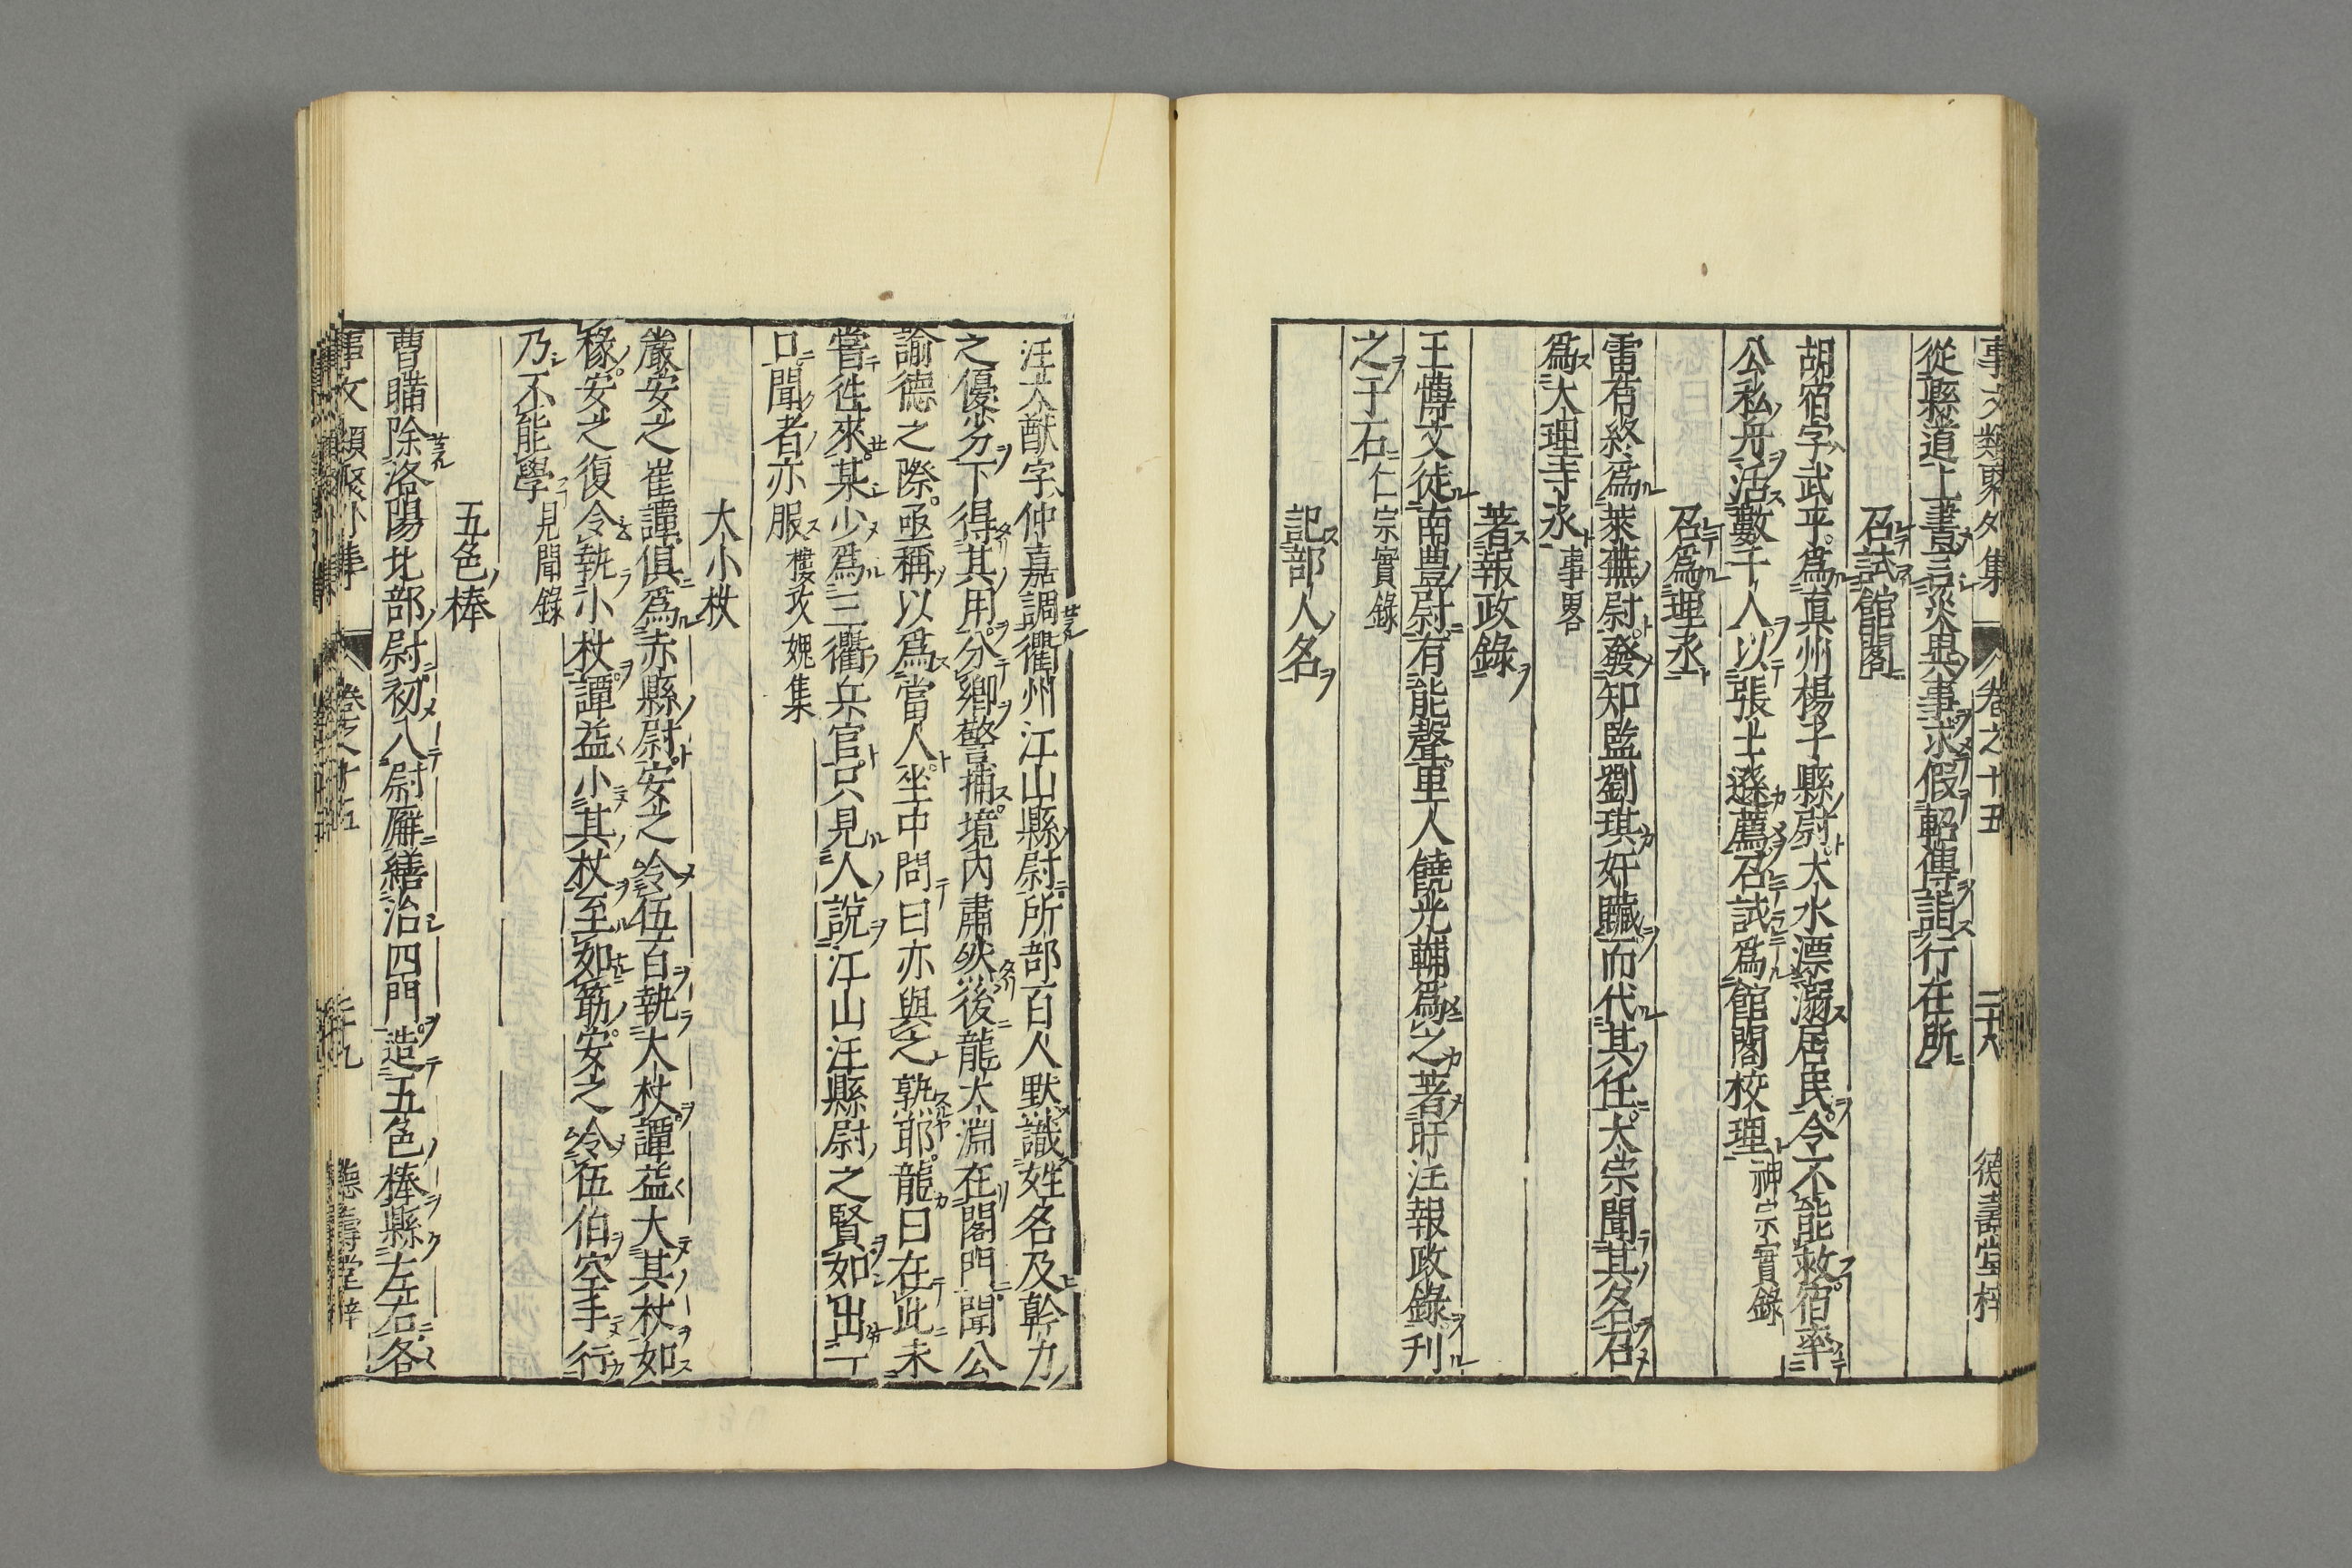 事文類聚外集 卷之十五 二十八 德壽堂梓
從縣道上書言災異事求假軺傳詣行在所
召試館閣
胡宿字武平爲真州楊子縣尉大水漂溺居民令不能救宿率
公私舟活數千人以張士遜薦召試爲館閣校理 神宗實錄
召爲理丞
雷有終爲萊蕪尉發知監劉琪奸贓而代其任太宗聞其名召
爲大理寺丞 事畧
著報政錄
王博文徙南豊尉有能聲里人饒光輔爲之著旴江報政錄刊
之于石 仁宗實錄
記部人名
汪大猷字仲嘉調衢州江山縣尉所部百人默識姓名及幹力
之優劣下得其用分鄉警捕境內肅然後龍大淵在閤門聞公
諭德之際亟稱以爲當人坐中問曰亦與之熟耶龍曰在此未
嘗徃來某少爲三衢兵官只見人說江山汪縣尉之賢如出一
口聞者亦服 樓攻媿集
大小杖
嚴安之崔譚俱爲赤縣尉安之令伍百執大杖譚益大其杖如
椽安之復令執小杖譚益小其杖至如筯安之令伍伯空手行
乃不能學 見聞錄
五色棒
曹瞞除洛陽北部尉初入尉廨繕治四門造五色棒縣左右各
事文類聚外集 卷之十五 二十九 德壽堂梓